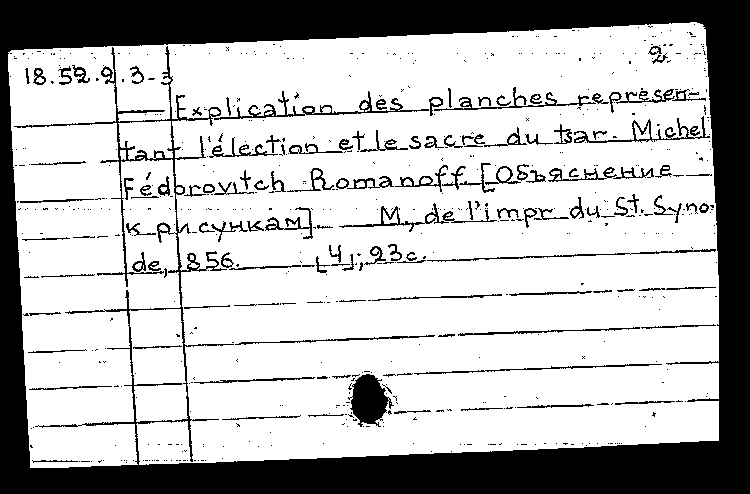 2
18.52.2.3-3
— Explication des planches represen-
tant l'élection et le sacre du tsar Michel
Fédorovitch Romanoff. [Объяснение
к рисункам]. М., de l'impr du St. Syno-
de, 1856. [4]; 23 с.